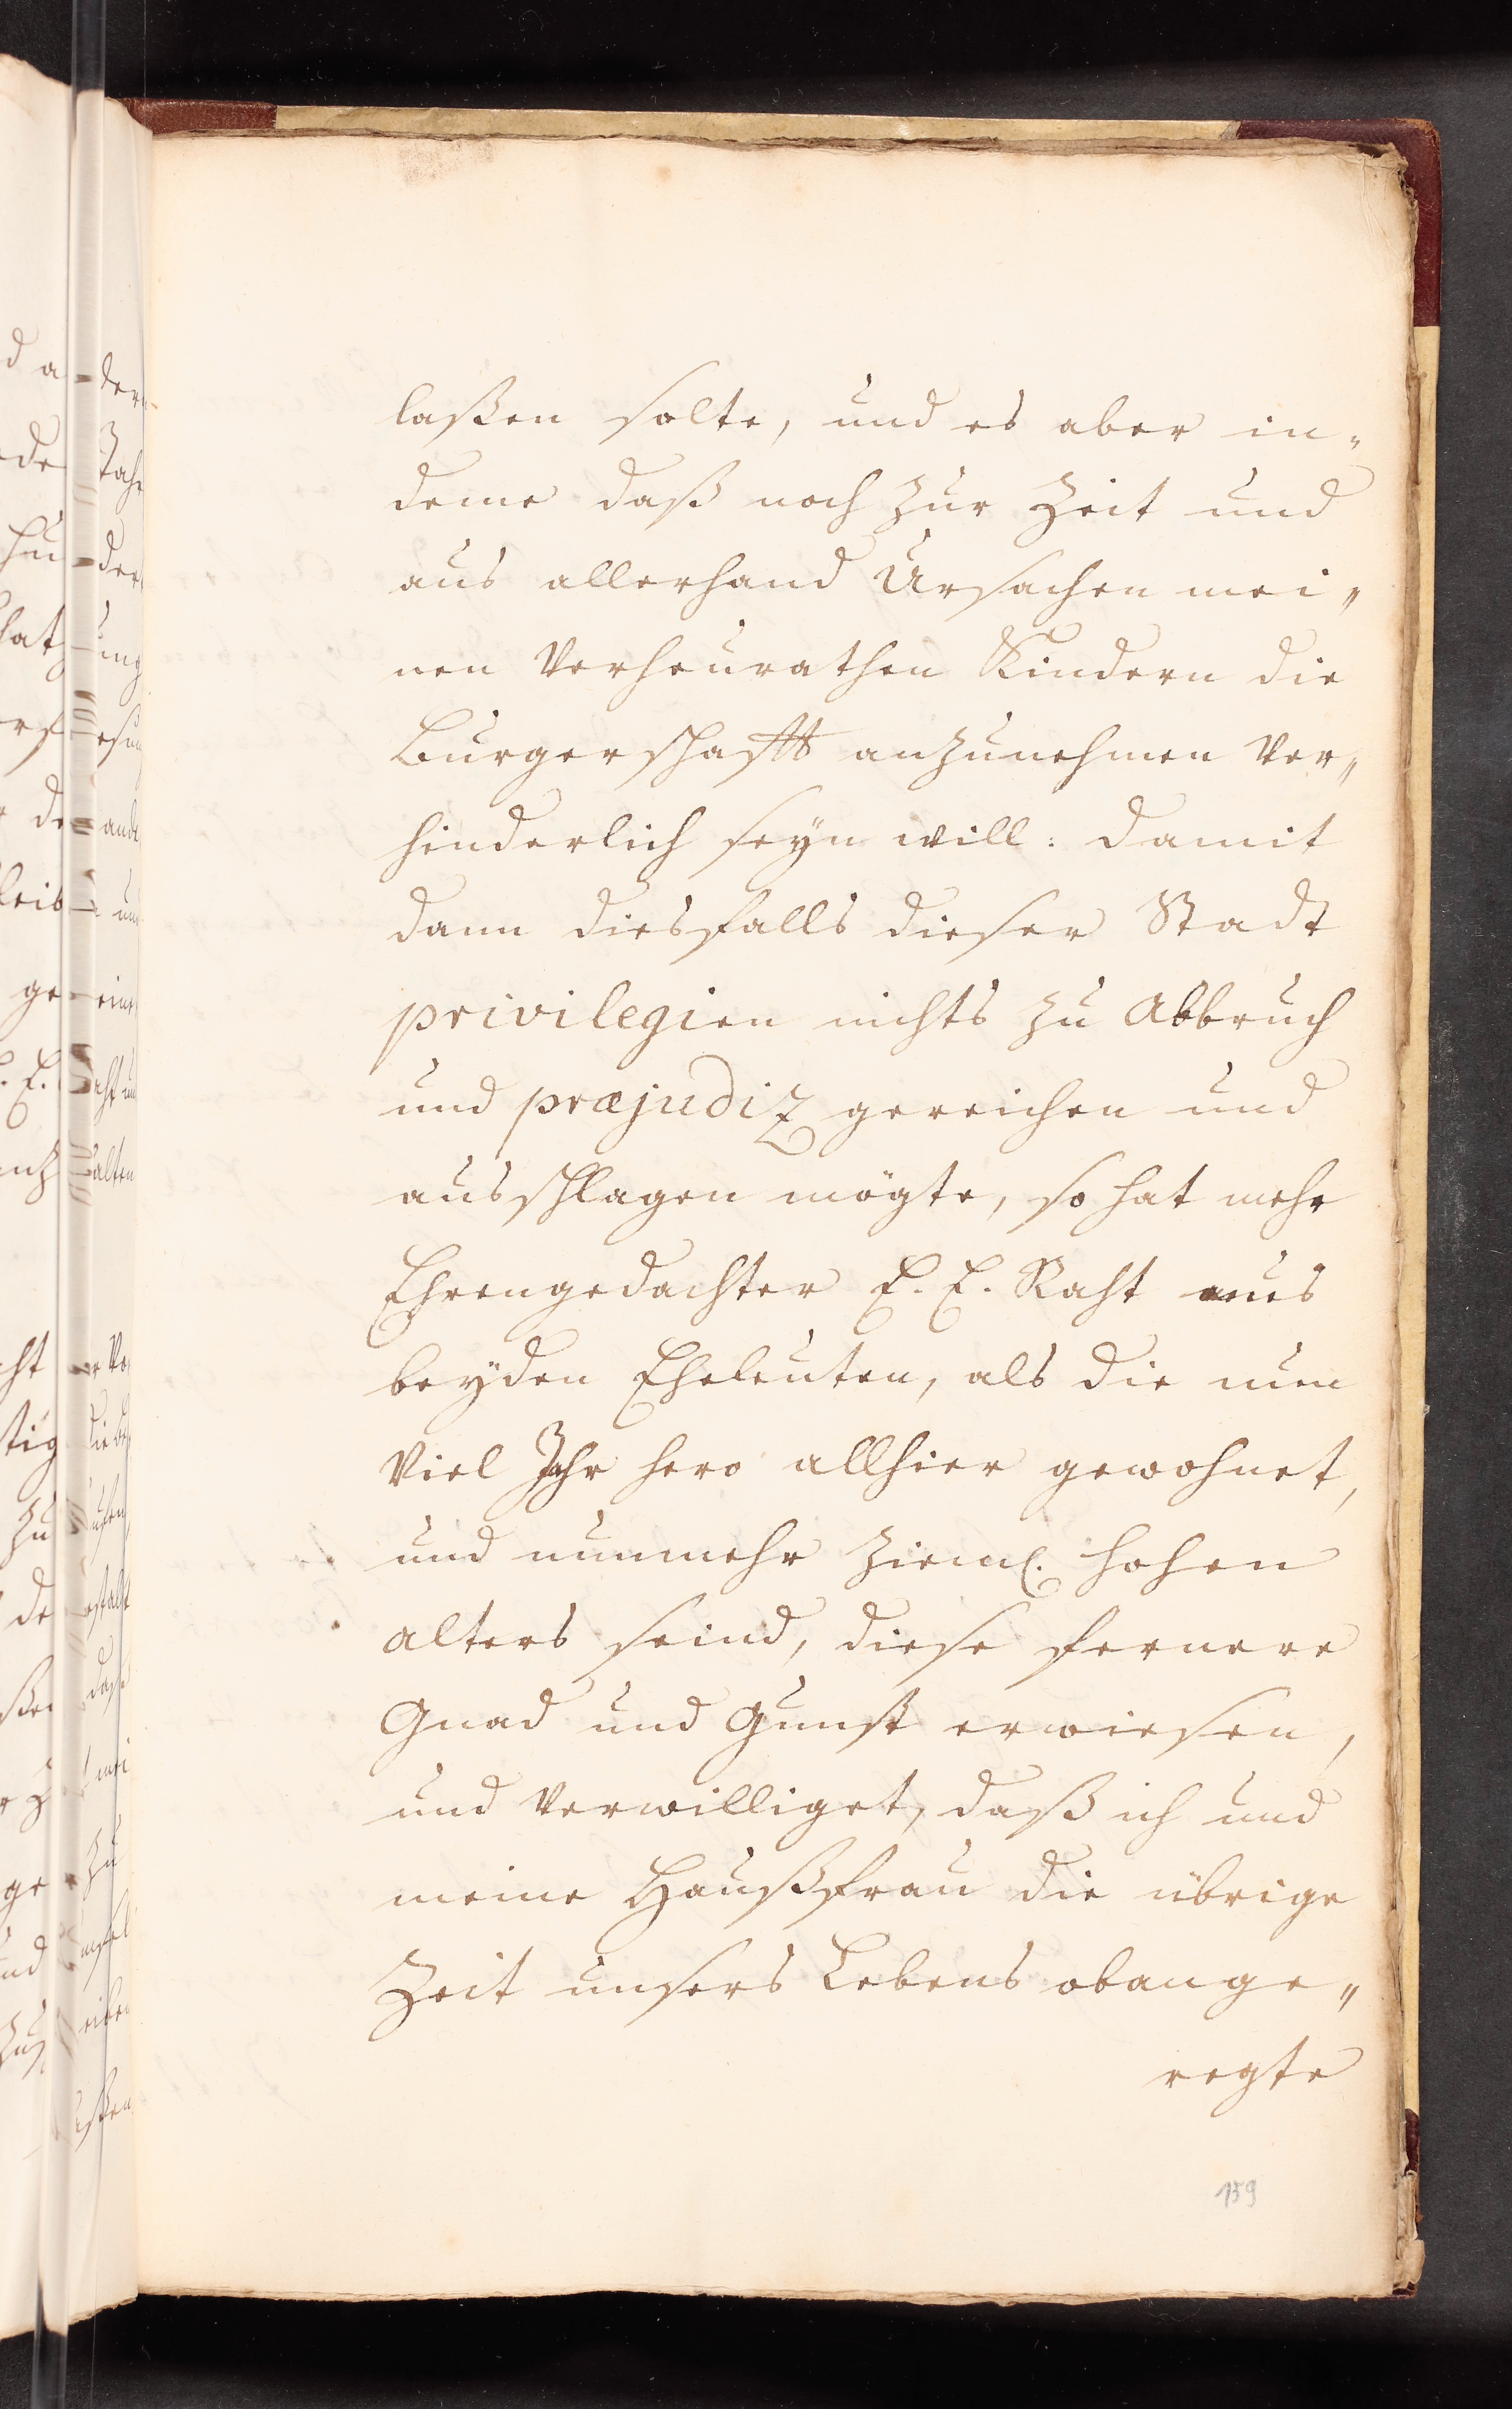 laßen solte, und es aber in„
deme daß noch zur Zeit und
aus allerhand Ursachen mei„
nen Verheurathen Kindern die
Burgerschafft anzunehmen Ver„
hinderlich seÿn will: damit
dann diesfalls dieser Stadt
privilegien nichts zu Abbruch
und præjudiz gereichen und
ausschlagen mögte, so hat mehr
Ehrengedachter E. E. Raht uns
beÿden Eheleuten, als die nun
Viel Jahr hero allhier gewohnet,
und nunmehr zieml. hohen
alters seind, diese fernere
Gnad und Gunst erwiesen,
und Verwilliget, daß ich und
meine Haußfrau die übrige
Zeit unsers Lebens obange„
regte
159